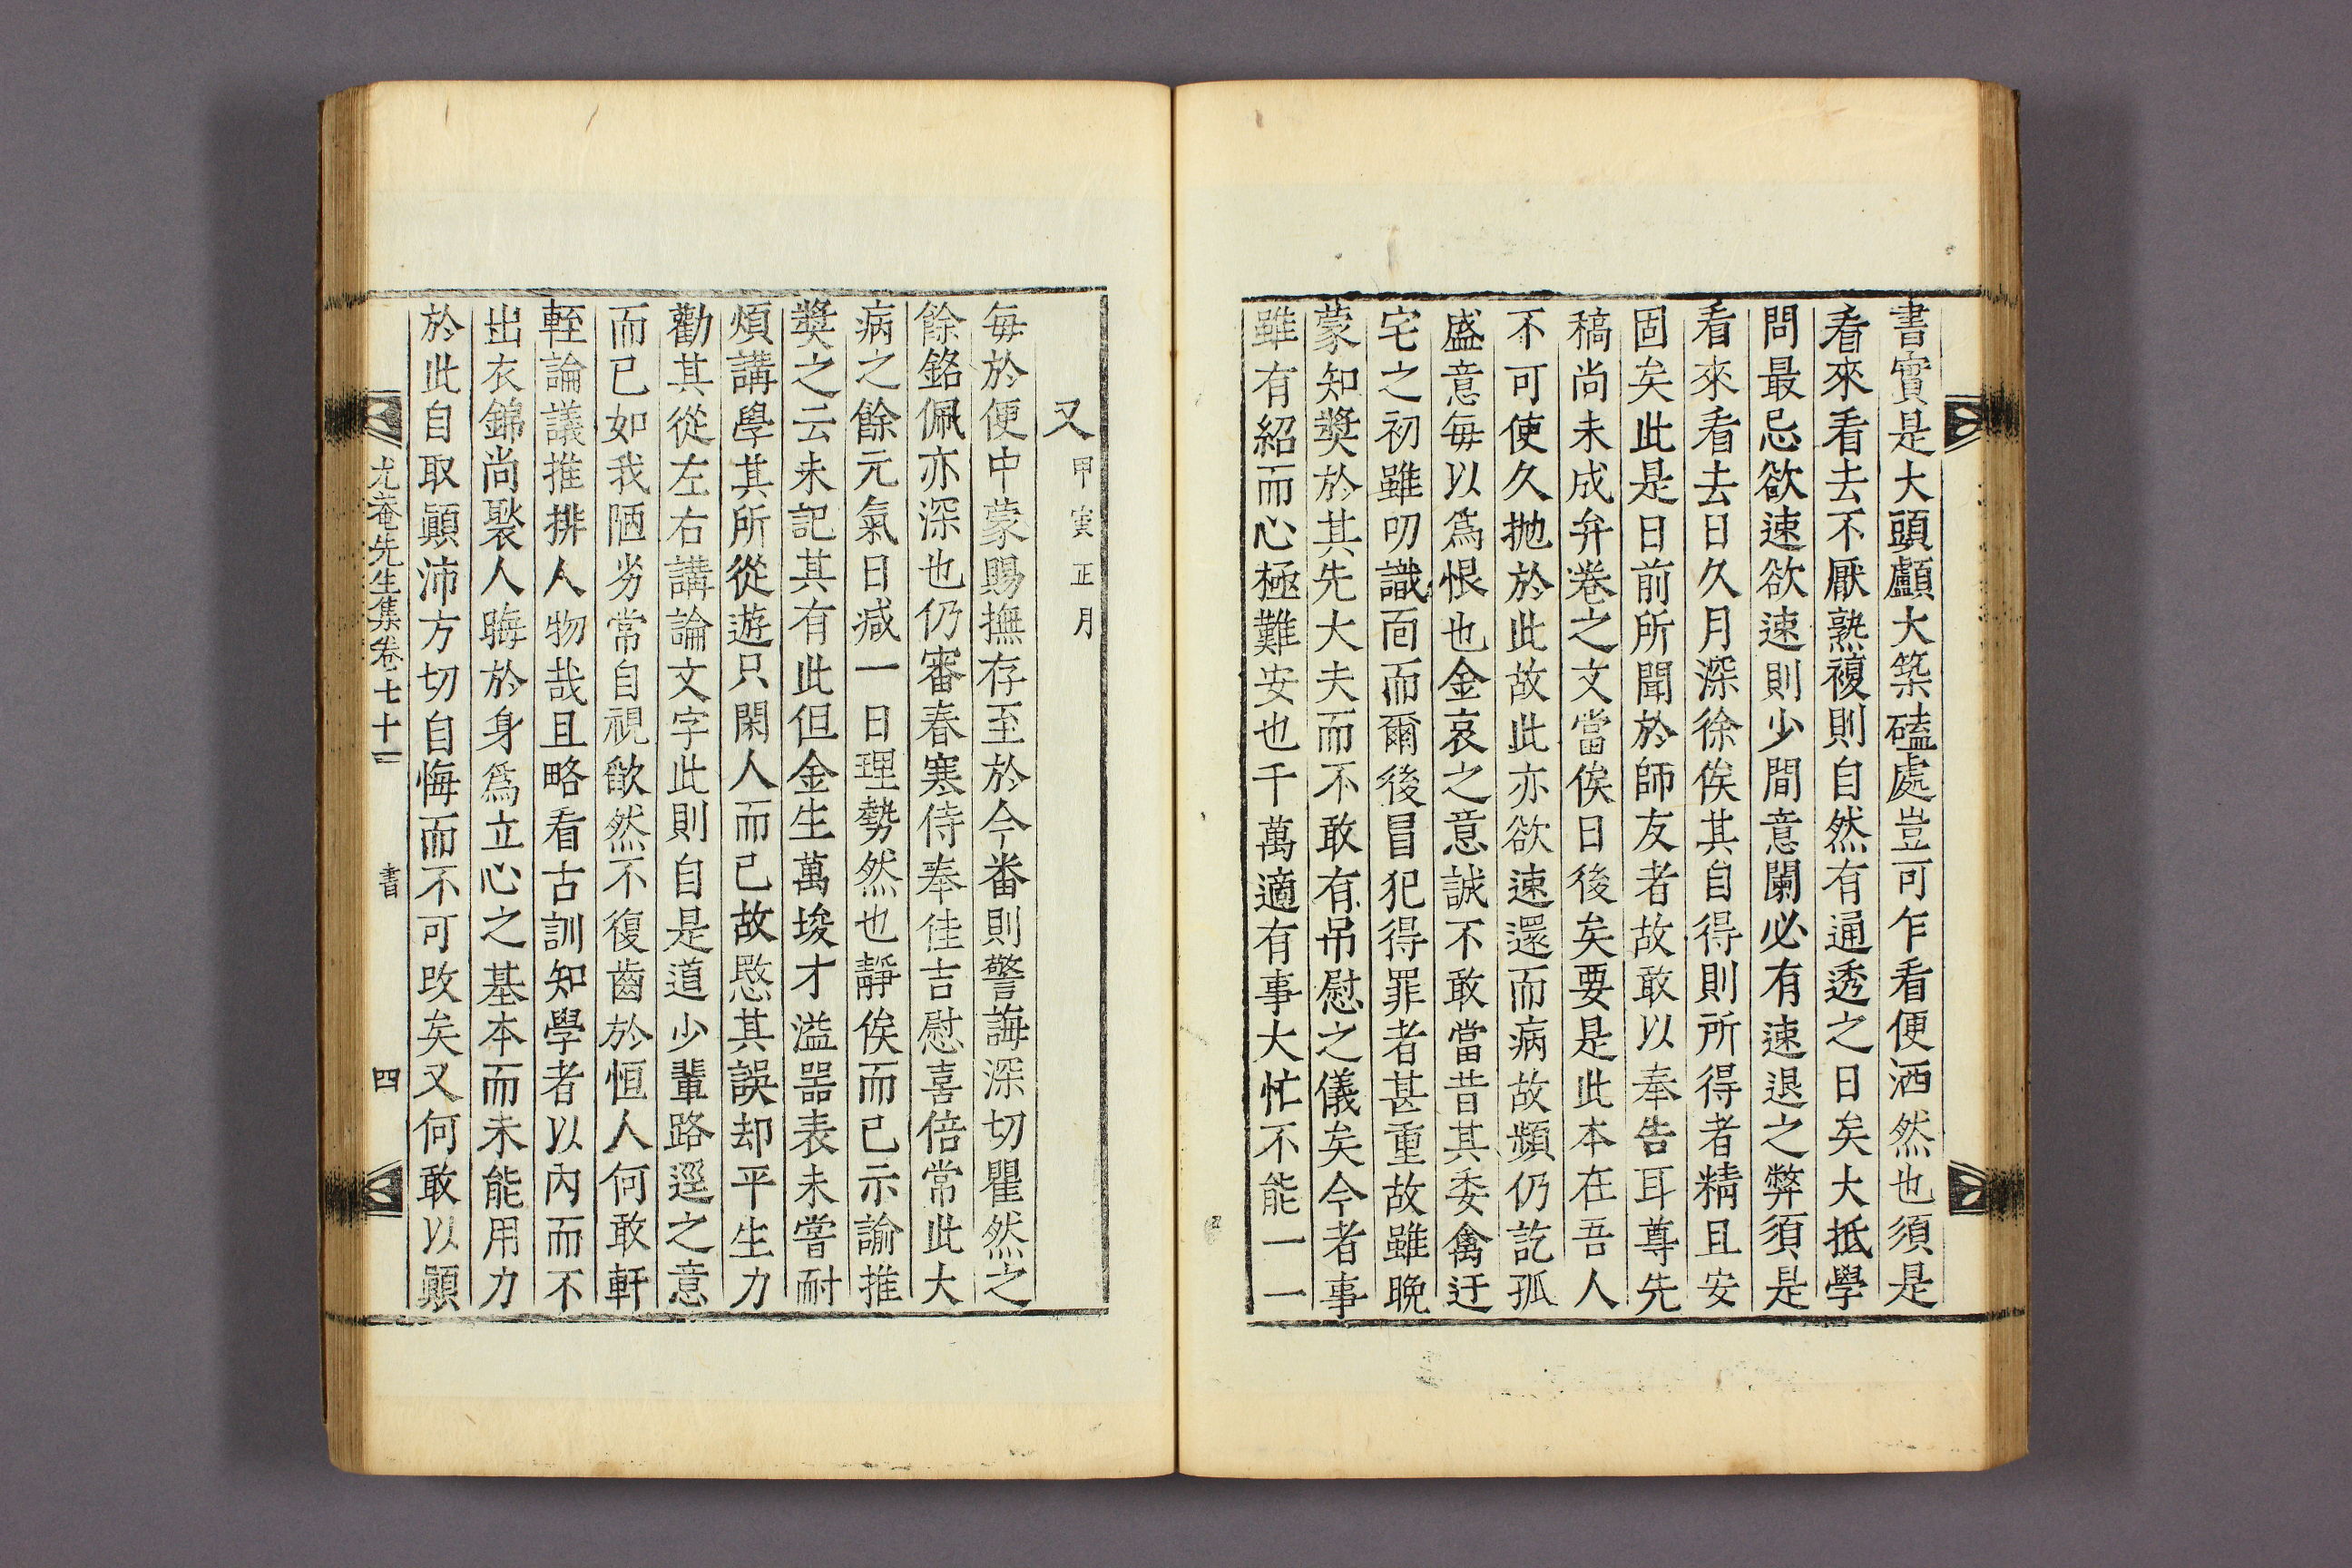 書實是大頭顱大築磕處豈可乍看便洒然也須是
看來看去不厭熟複則自然有通透之日矣大抵學
問最忌欲速欲速則少間意闌必有速退之弊須是
看來看去日久月深徐俟其自得則所得者精且安
固矣此是日前所聞於師友者故敢以奉告耳尊先
稿尚未成弁卷之文當俟日後矣要是此本在吾人
不可使久抛於此故此亦欲速還而病故頻仍訖孤
盛意每以爲恨也金哀之意誠不敢當昔其委禽迂
宅之初雖叨識面而爾後冒犯得罪者甚重故雖晩
蒙知奬於其先大夫而不敢有吊慰之儀矣今者事
雖有紹而心極難安也千萬適有事大忙不能一一
又甲寅正月
每於便中蒙賜撫存至於今番則警誨深切瞿然之
餘銘佩亦深也仍審春寒侍奉佳吉慰喜倍常此大
病之餘元氣日减一日理勢然也靜俟而已示諭推
奬之云未記其有此但金生萬埈才溢噐表未嘗耐
煩講學其所從遊只閑人而已故愍其誤却平生力
勸其從左右講論文字此則自是道少輩路逕之意
而已如我陋劣常自視歉然不復齒於恒人何敢軒
輊論議推排人物哉且略看古訓知學者以內而不
出衣錦尚褧人晦於身爲立心之基本而未能用力
於此自取顚沛方切自悔而不可改矣又何敢以顚
尤菴先生集卷七十一 書 四